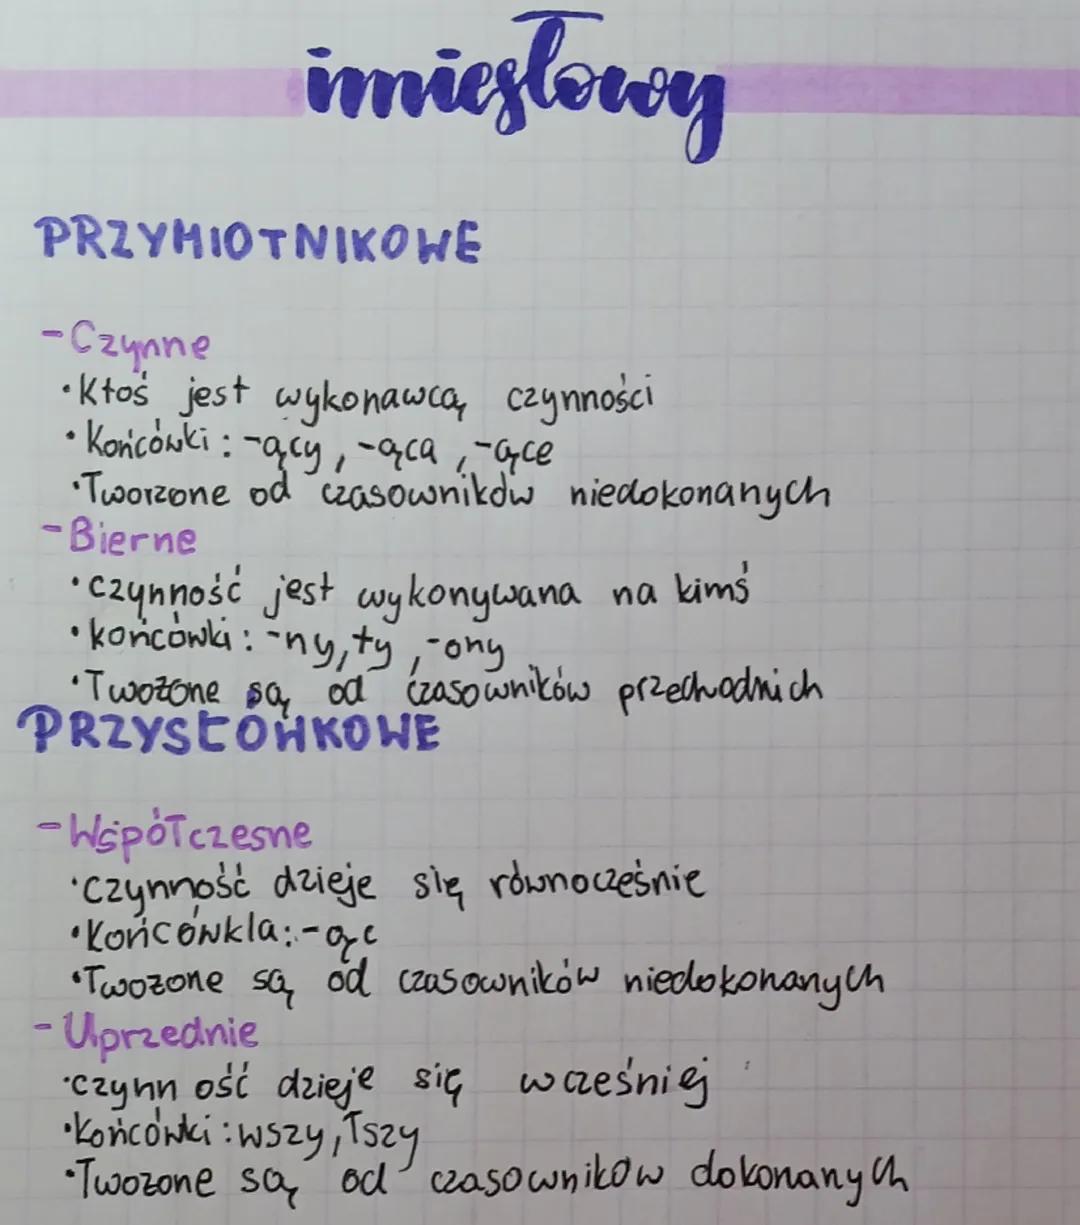 imiesłowy
PRZYMIOTNIKOWE
- Czynne
• Ktoś jest wykonawcą czynności
• Końcówki : -ący, -ąca, -ące
• Tworzone od czasowników niedokonanych
- Bierne
• czynność jest wykonywana na kimś
• końcówki : -ny, ty, -ony
• Twożone są od czasowników przechodnich
PRZYSŁÓWKOWE
- Współczesne
• czynność dzieje się równocześnie
• Końcówkla: -ąc
• Twozone są od czasowników niedokonanych
- Uprzednie
• czynn ość dzieje się wcześniej
• Końcówki : wszy, łszy
• Twozone są od czasowników dokonanych